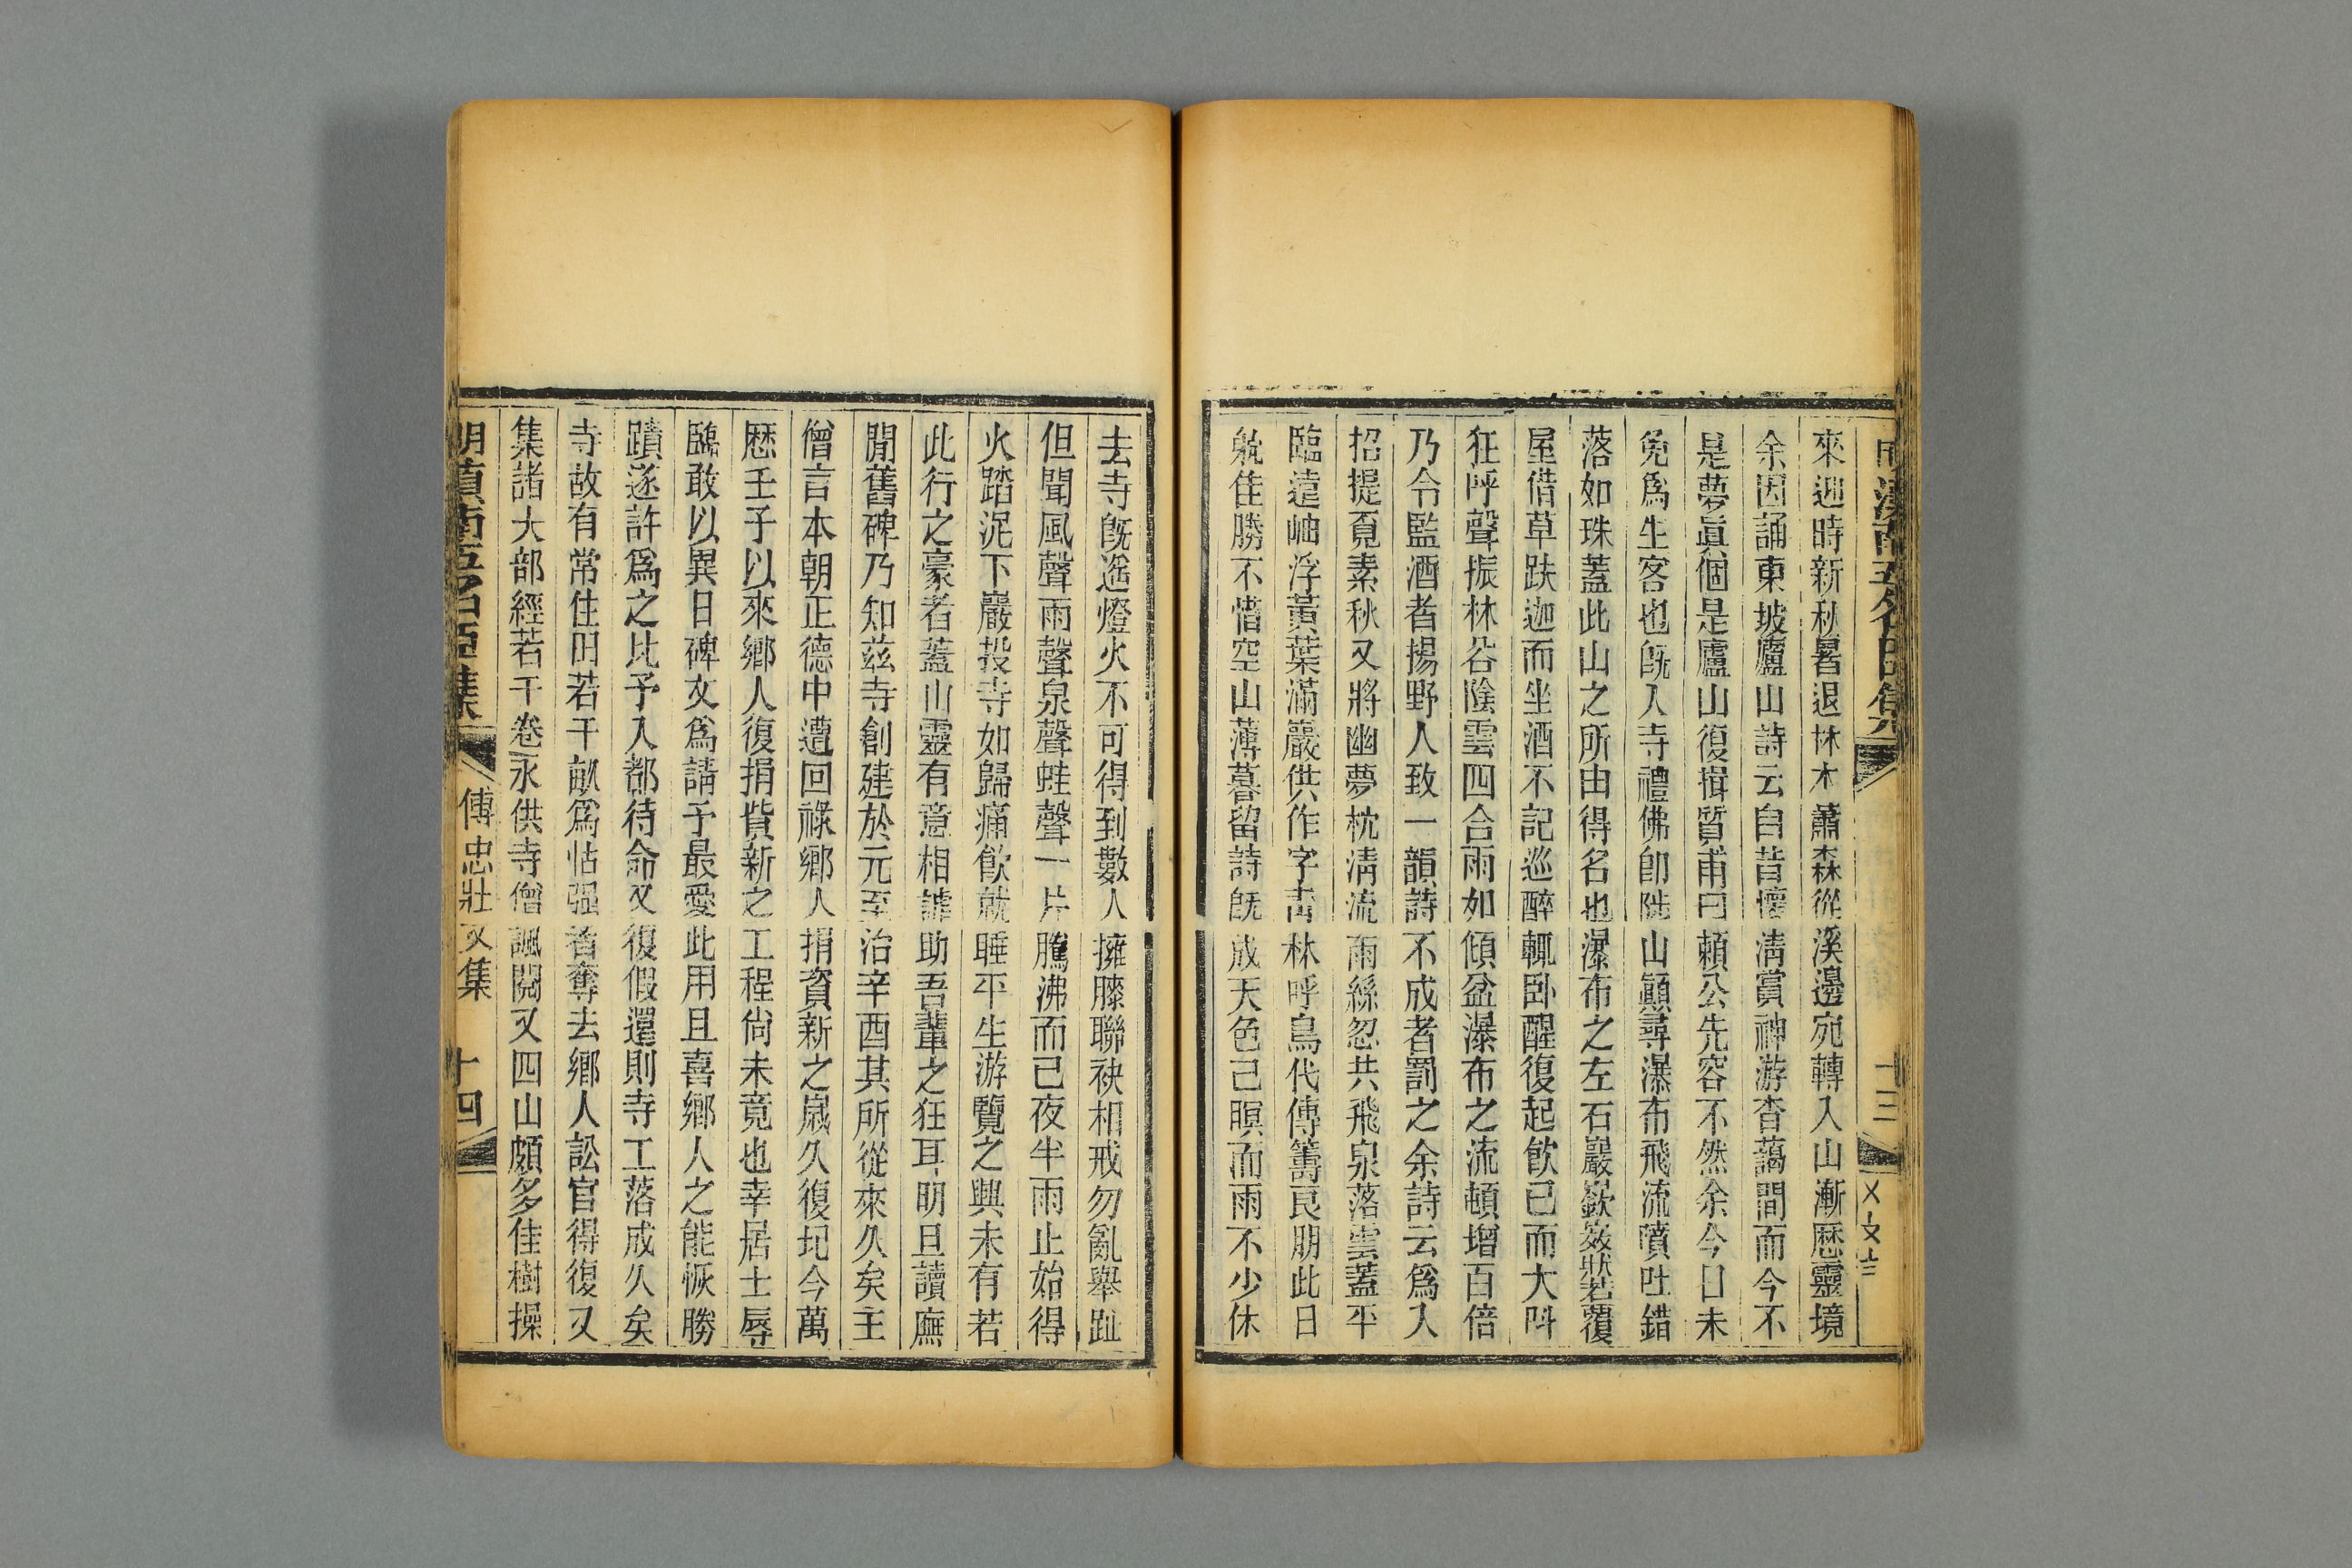 來迴時新秋暑退林木蕭森從溪邊宛轉入山漸歷靈境
余因誦東坡廬山詩云自昔懷清賞神游杳藹間而今不
是夢眞個是廬山復揖質甫曰賴公先容不然余今日未
免爲生客也既入寺禮佛卽陟山顚尋瀑布飛流噴吐錯
落如珠蓋此山之所由得名也瀑布之左石巖嶔崟狀若覆
屋借草趺迦而坐酒不記巡醉輒卧醒復起飮已而大呌
狂呼聲振林谷陰雲四合雨如傾盆瀑布之流頓增百倍
乃令監酒者揚野人致一韻詩不成者罰之余詩云爲入
招提覔素秋又將幽夢枕清流雨絲忽共飛泉落雲蓋平
臨遠岫浮黃葉滿巖供作字靑林呼鳥代傳籌良朋此日
躭佳勝不惜空山薄暮留詩既成天色已暝而雨不少休
十三
去寺旣遙燈火不可得到數人擁膝聯袂相戒勿亂舉趾
但聞風聲雨聲泉聲蛙聲一片騰沸而已夜半雨止始得
火踏泥下巖投寺如歸痛飮就睡平生游覽之興未有若
此行之豪者蓋山靈有意相謔助吾輩之狂耳明旦讀廡
閒舊碑乃知茲寺創建於元至治辛酉其所從來久矣主
僧言本朝正德中遭回祿鄉人捐資新之嵗久復圮今萬
歷壬子以來鄉人復捐貲新之工程尙未竟也幸居士辱
臨敢以異日碑文爲請予最愛此用且喜鄉人之能恢勝
蹟遂許爲之比予入都待命又復假還則寺工落成久矣
寺故有常住田若干畝爲怙强者奪去鄉人訟官得復又
集諸大部經若干卷永供寺僧諷閱又四山頗多佳樹操
傅忠壯文集
十四